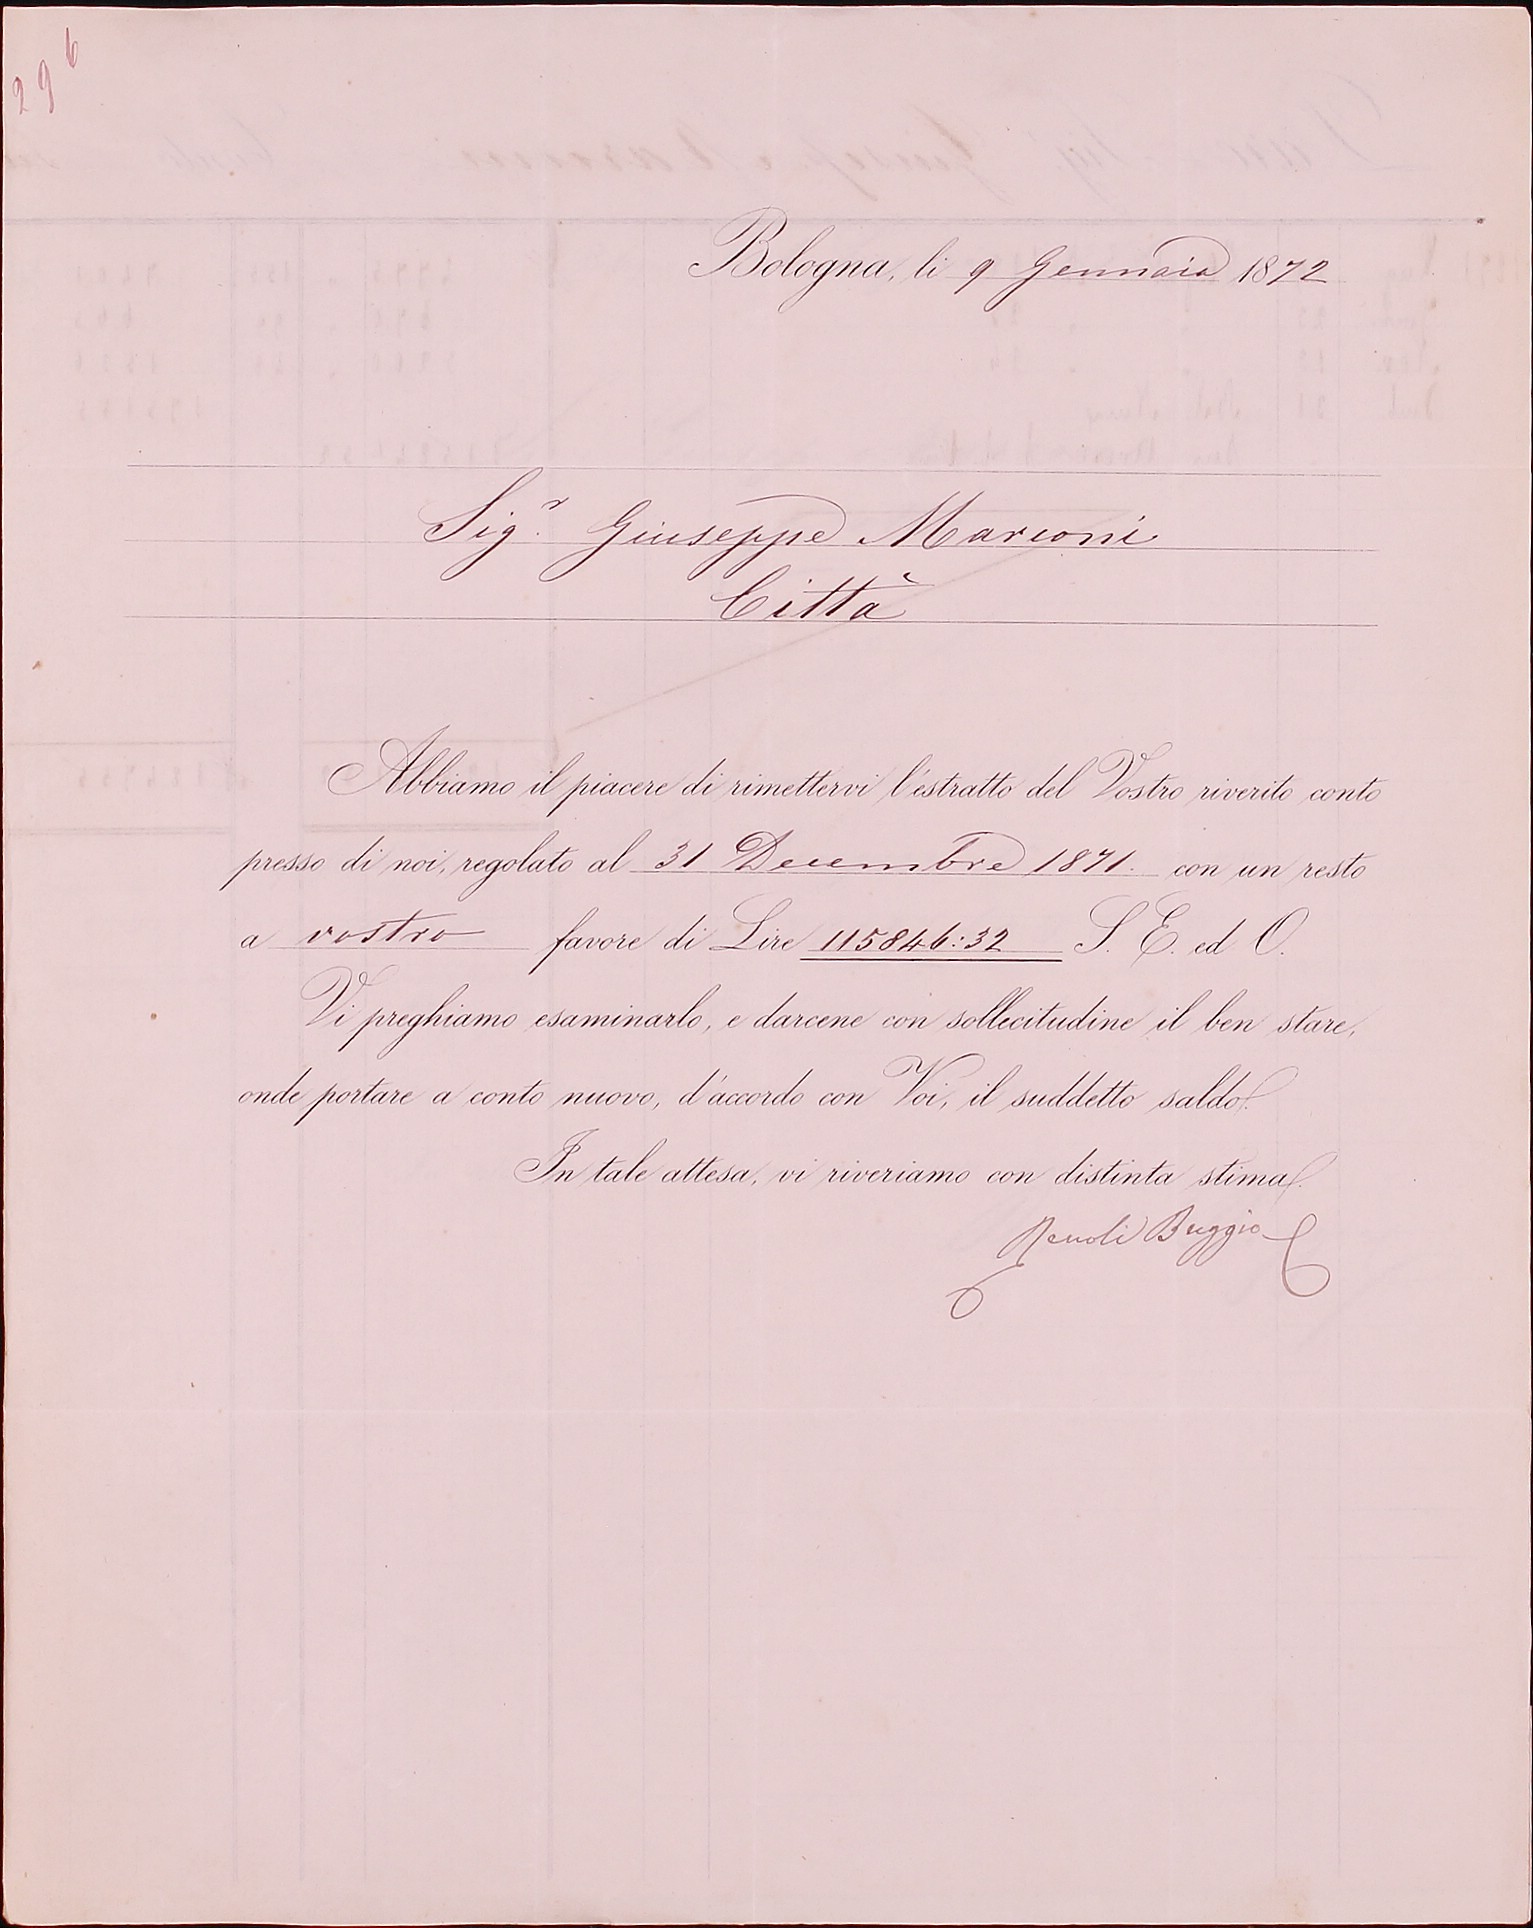 296
Bologna, li 9 Gennaio 1872
Sig.r Giuseppe Marconi
Città
Abbiamo il piacere di rimettervi l'estratto del Vostro riverito conto
presso di noi, regolato al 31 Decembre 1871. con un resto
a vostro favore di Lire 115846:32 S. E. ed O.
Vi preghiamo esaminarlo, e darcene con sollecitudine il ben stare,
onde portare a conto nuovo, d'accordo con Voi, il suddetto saldo.
In tale attesa, vi riveriamo con distinta stima.
Buggio